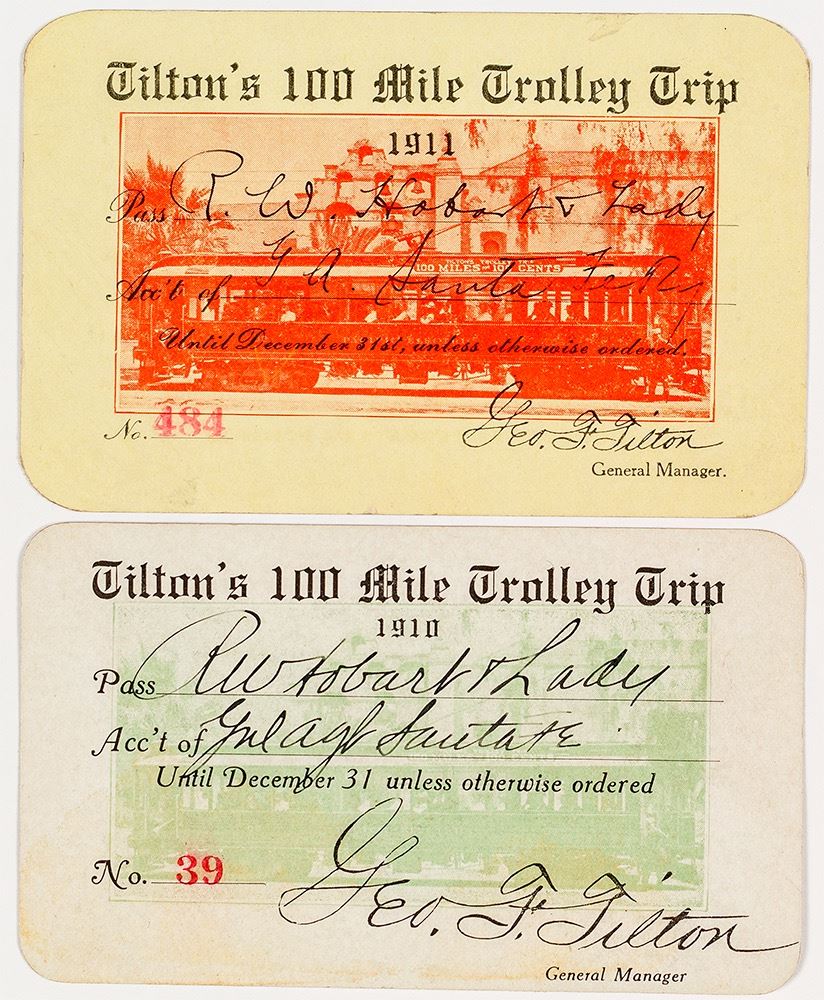 Tilton's 100 Mile Trolley Trip
1911
Pass R. W. Hobart & Lady
TILTON'S TROLLEY TRIP
100 MILES FOR 100 CENTS
Acc't of G. A. Santa Fe Ry
Until December 31st, unless otherwise ordered.
No. 484
Geo. F. Tilton
General Manager.
Tilton's 100 Mile Trolley Trip
1910
Pass R W Hobart & Lady
Acc't of Gnl Agt Santa Fe
Until December 31 unless otherwise ordered
No. 39
Geo. F. Tilton
General Manager